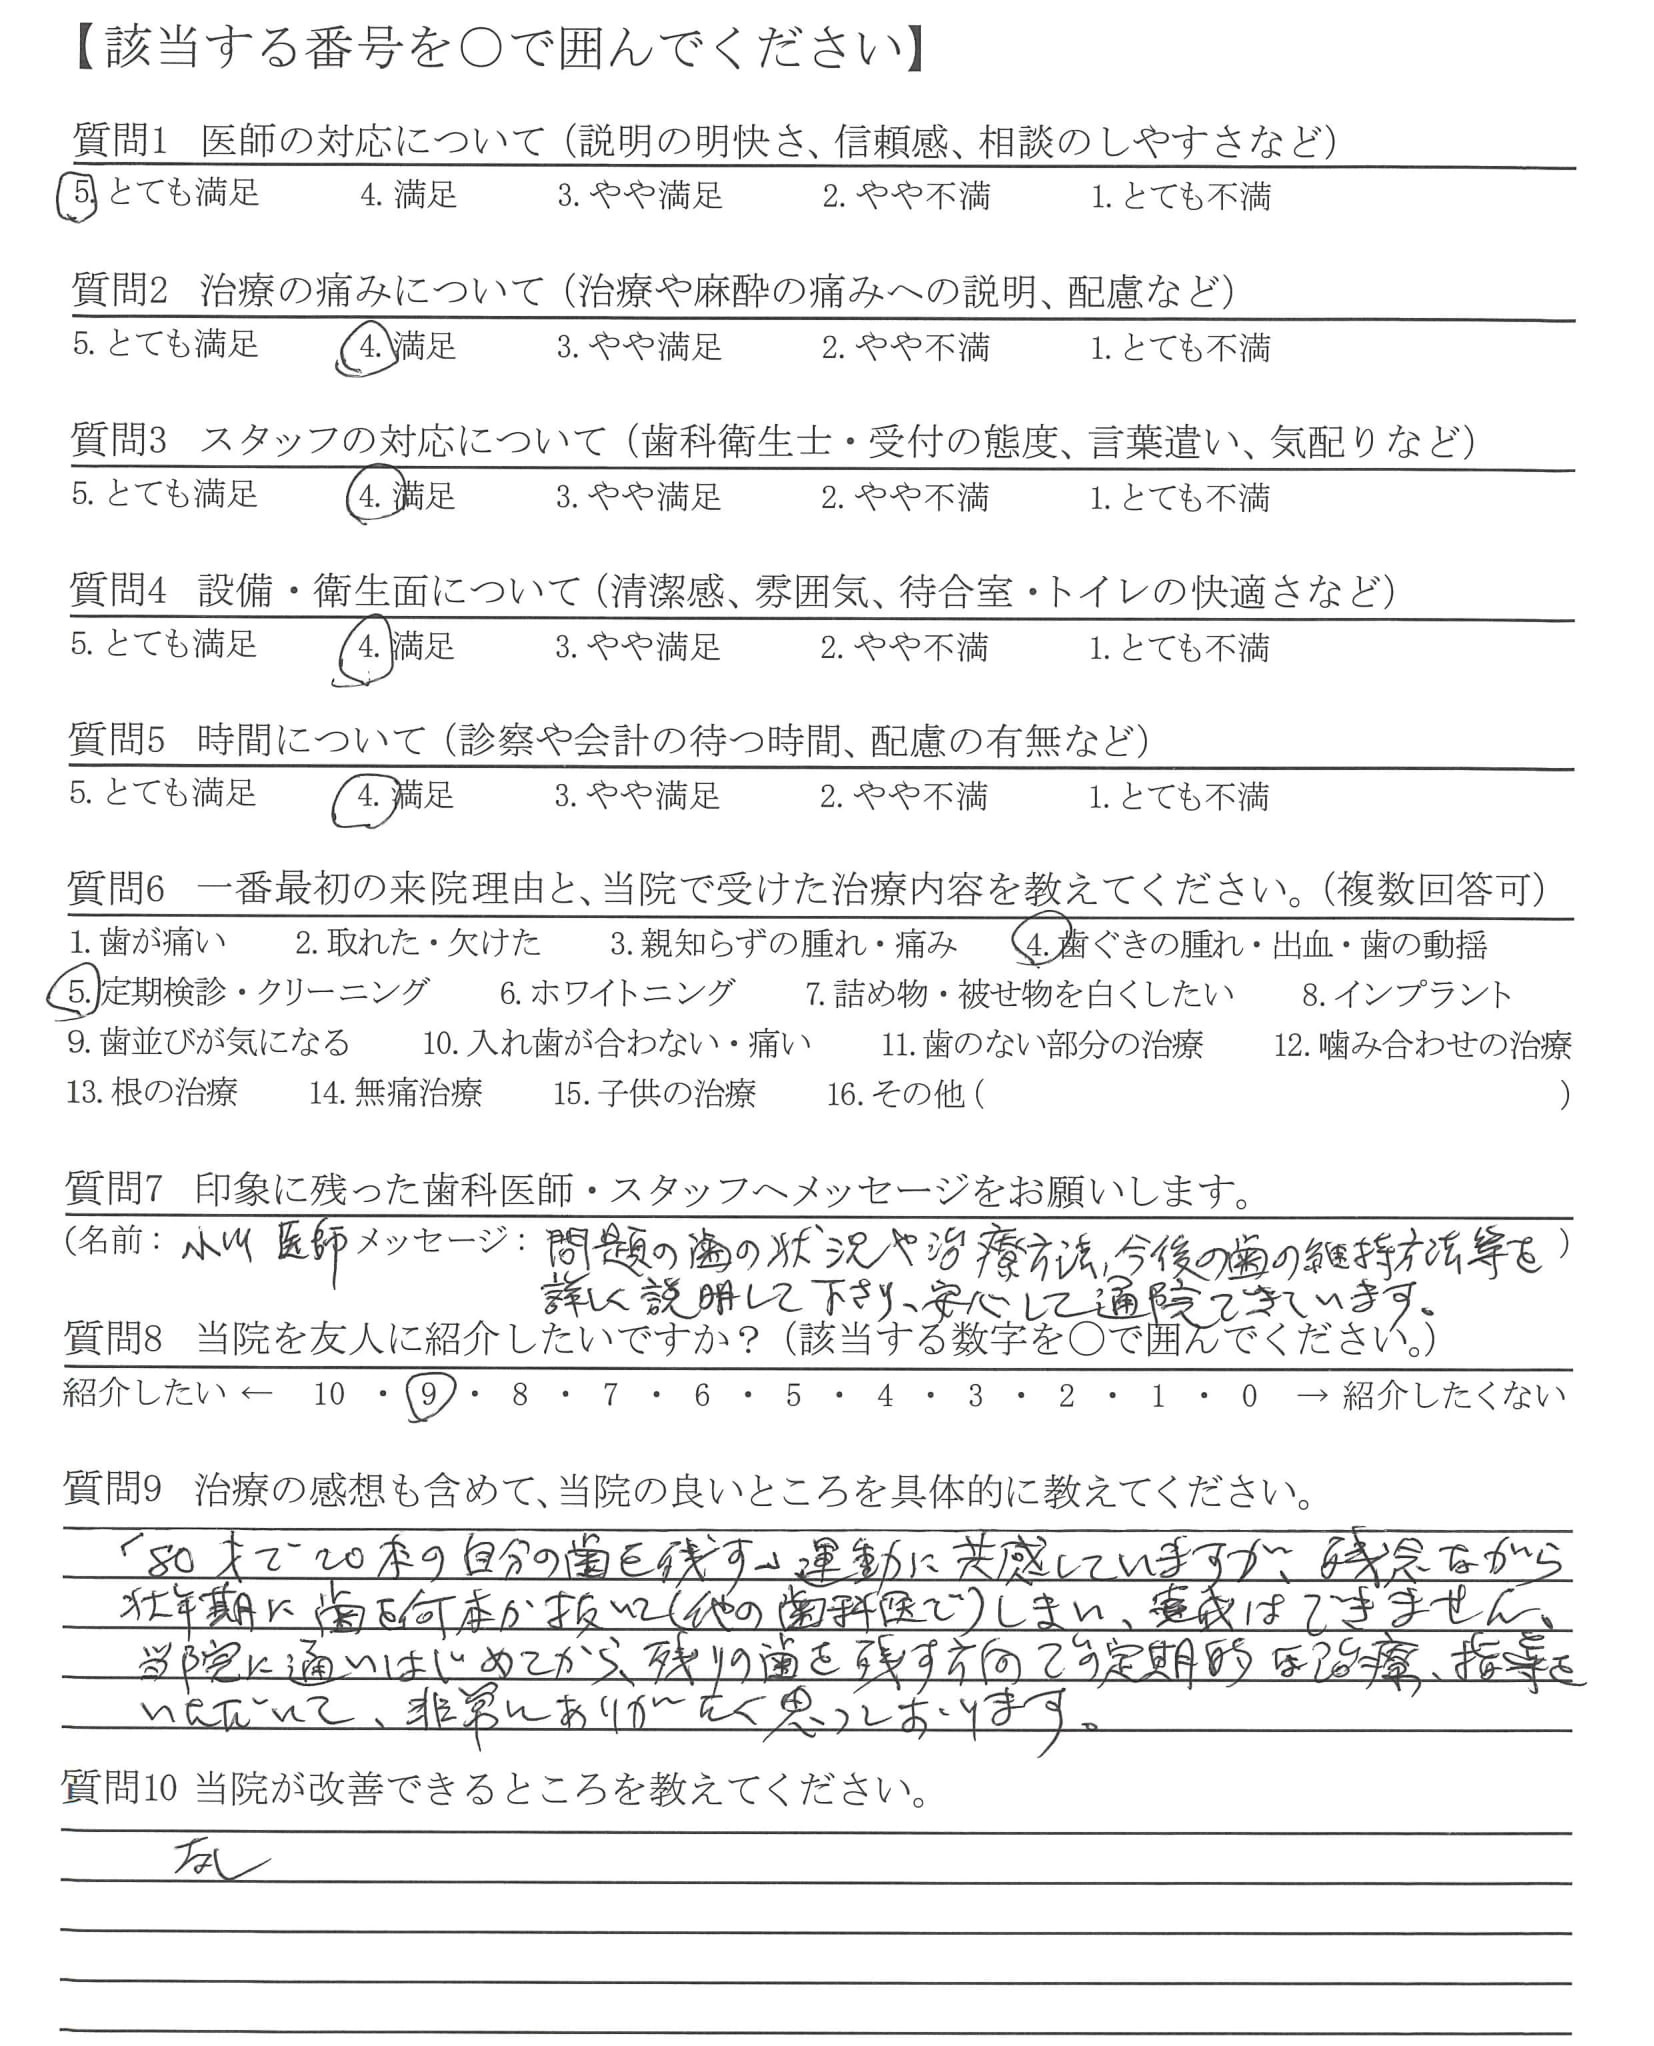 【該当する番号を○で囲んでください】
質問1 医師の対応について（説明の明快さ、信頼感、相談のしやすさなど）
5. とても満足 4. 満足 3. やや満足 2. やや不満 1. とても不満
質問2 治療の痛みについて（治療や麻酔の痛みへの説明、配慮など）
5. とても満足 4. 満足 3. やや満足 2. やや不満 1. とても不満
質問3 スタッフの対応について（歯科衛生士・受付の態度、言葉遣い、気配りなど）
5. とても満足 4. 満足 3. やや満足 2. やや不満 1. とても不満
質問4 設備・衛生面について（清潔感、雰囲気、待合室・トイレの快適さなど）
5. とても満足 4. 満足 3. やや満足 2. やや不満 1. とても不満
質問5 時間について（診察や会計の待つ時間、配慮の有無など）
5. とても満足 4. 満足 3. やや満足 2. やや不満 1. とても不満
質問6 一番最初の来院理由と、当院で受けた治療内容を教えてください。（複数回答可）
1. 歯が痛い 2. 取れた・欠けた 3. 親知らずの腫れ・痛み 4. 歯ぐきの腫れ・出血・歯の動揺
5. 定期検診・クリーニング 6. ホワイトニング 7. 詰め物・被せ物を白くしたい 8. インプラント
9. 歯並びが気になる 10. 入れ歯が合わない・痛い 11. 歯のない部分の治療 12. 噛み合わせの治療
13. 根の治療 14. 無痛治療 15. 子供の治療 16. その他（ ）
質問7 印象に残った歯科医師・スタッフへメッセージをお願いします。
（名前： 小川 医師 メッセージ： 問題の歯の状況や治療方法、今後の歯の維持方法等を ）
詳しく説明して下さり、安心して通院できています。
質問8 当院を友人に紹介したいですか？（該当する数字を○で囲んでください。）
紹介したい ← 10 ・ 9 ・ 8 ・ 7 ・ 6 ・ 5 ・ 4 ・ 3 ・ 2 ・ 1 ・ 0 → 紹介したくない
質問9 治療の感想も含めて、当院の良いところを具体的に教えてください。
「80才で20本の自分の歯を残す」運動に共感していますが、残念ながら
壮年期に歯を何本か抜いて（他の歯科医で）しまい、達成はできません。
当院に通いはじめてから、残りの歯を残す方向での定期的な治療、指導を
いただいて、非常にありがたく思っております。
質問10 当院が改善できるところを教えてください。
なし